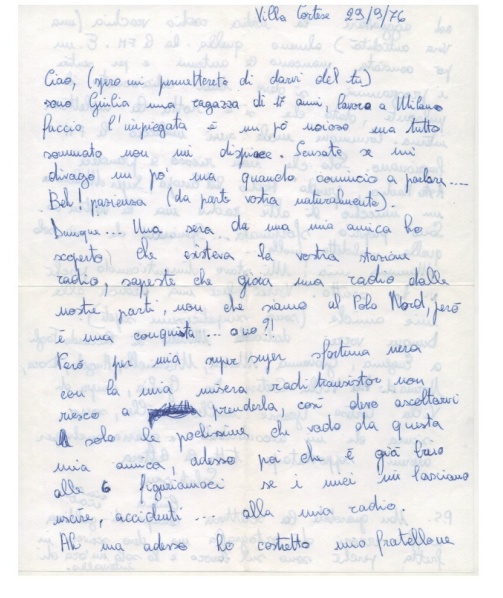 Villa Cortese 29/9/76
Ciao, (spero mi permetterete di darvi del tu)
sono Giulia una ragazza di 17 anni, lavoro a Milano
faccio l'impiegata è un po' noioso ma tutto
sommato non mi dispiace. Scusate se mi
divago un po' ma quando comincio a parlare....
Beh! pazienza (da parte vostra naturalmente).
Dunque... Una sera da una mia amica ho
scoperto che esisteva la vostra stazione
radio, sapeste che gioia una radio dalle
nostre parti non che siamo al Polo Nord, però
è una conquista... o no?!
Però per mia super super sfortuna nera
con la mia misera radio transistor non
riesco a prenderla, così devo ascoltarvi
solo le pochissime che vado da questa
mia amica, adesso poi che è già buio
alle 6 figuriamoci se i miei mi lasciano
uscire, accidenti ... alla mia radio.
Ah ma adesso ho costretto mio fratellone